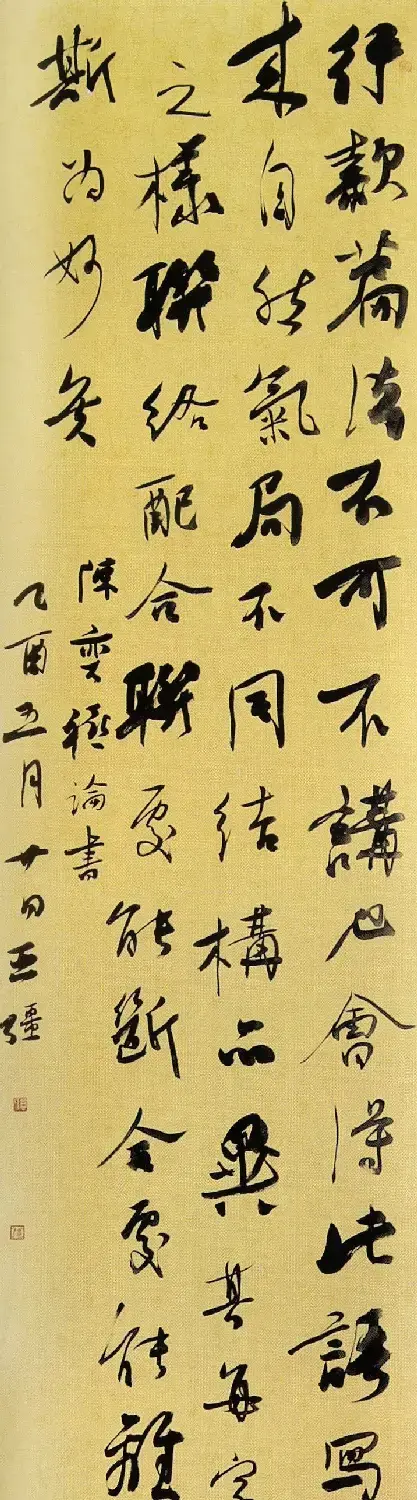 行款篇法不可不講也會得此語寫
來自然氣局不同結構亦異其無定
之樣聯絡配合聯處能斷合處能離
斯為妙矣
陳奕禧論書
乙酉五月廿日王彊